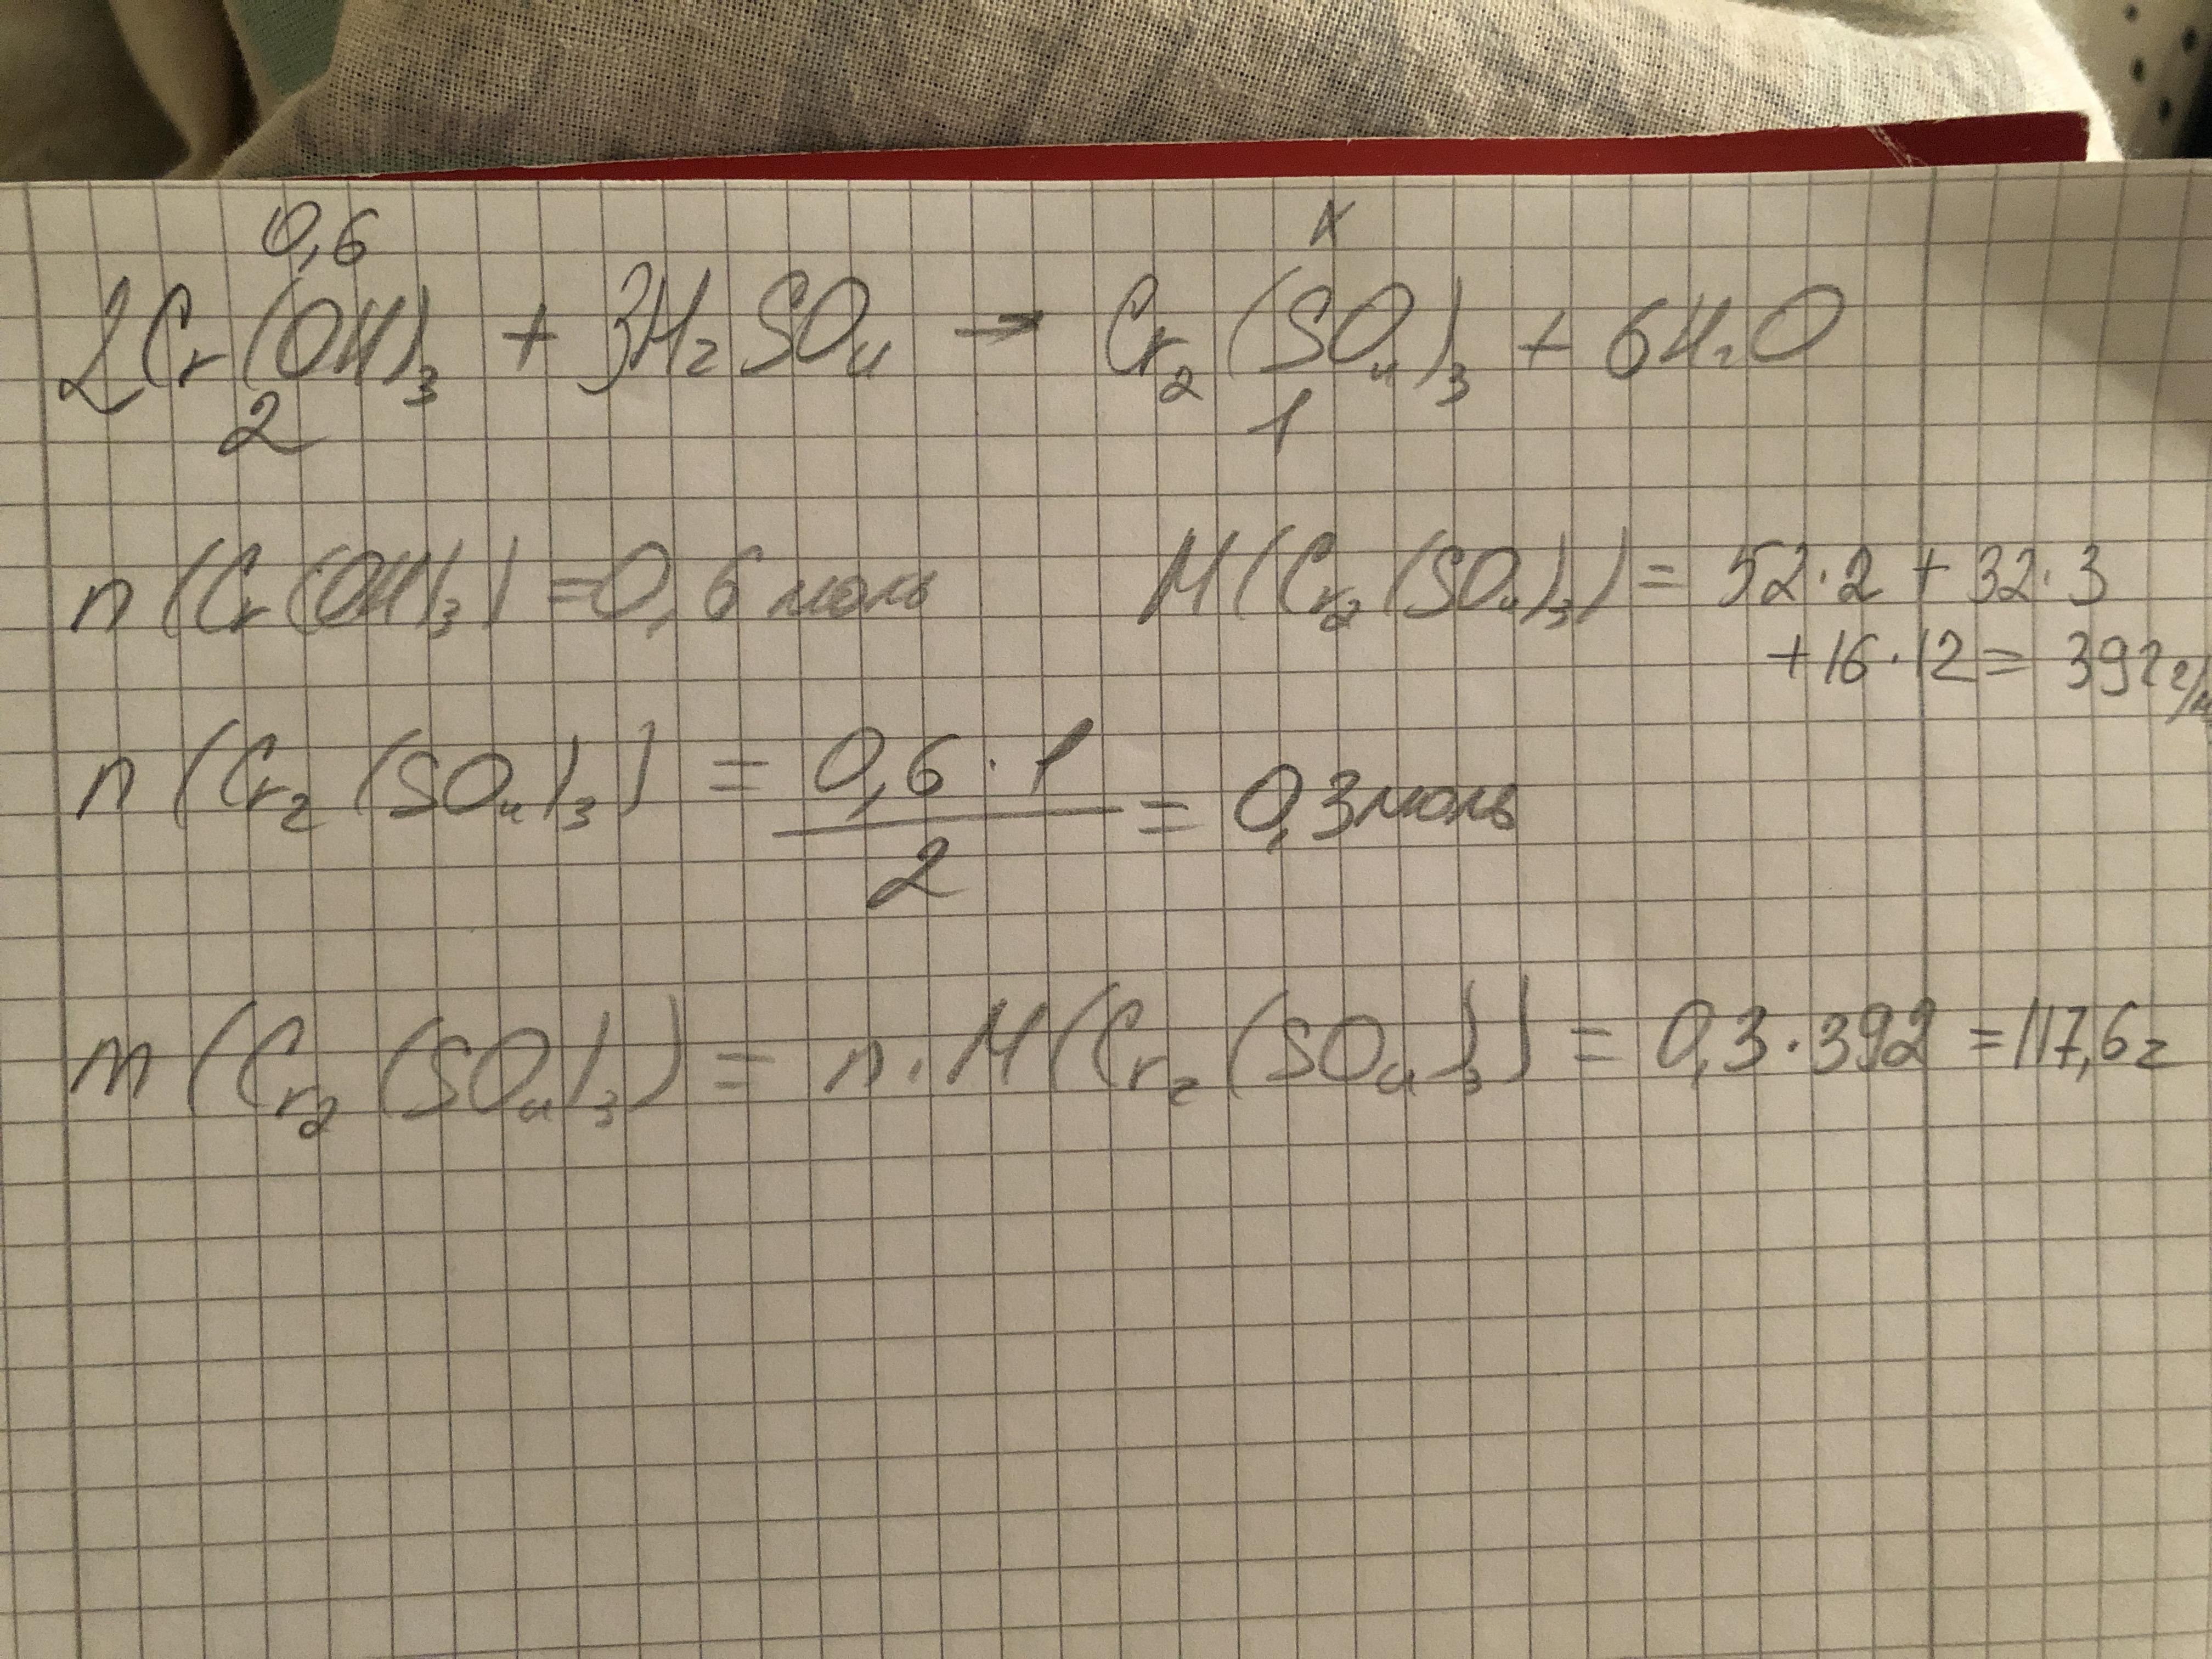 0,6 x
2Cr(OH)₃ + 3H₂SO₄ → Cr₂(SO₄)₃ + 6H₂O
2 1
n(Cr(OH)₃) = 0,6 моль M(Cr₂(SO₄)₃) = 52·2 + 32·3
+16·12 = 392 г/м
n(Cr₂(SO₄)₃) = 0,6·1 / 2 = 0,3 моль
m(Cr₂(SO₄)₃) = n·M(Cr₂(SO₄)₃) = 0,3·392 = 117,6 г